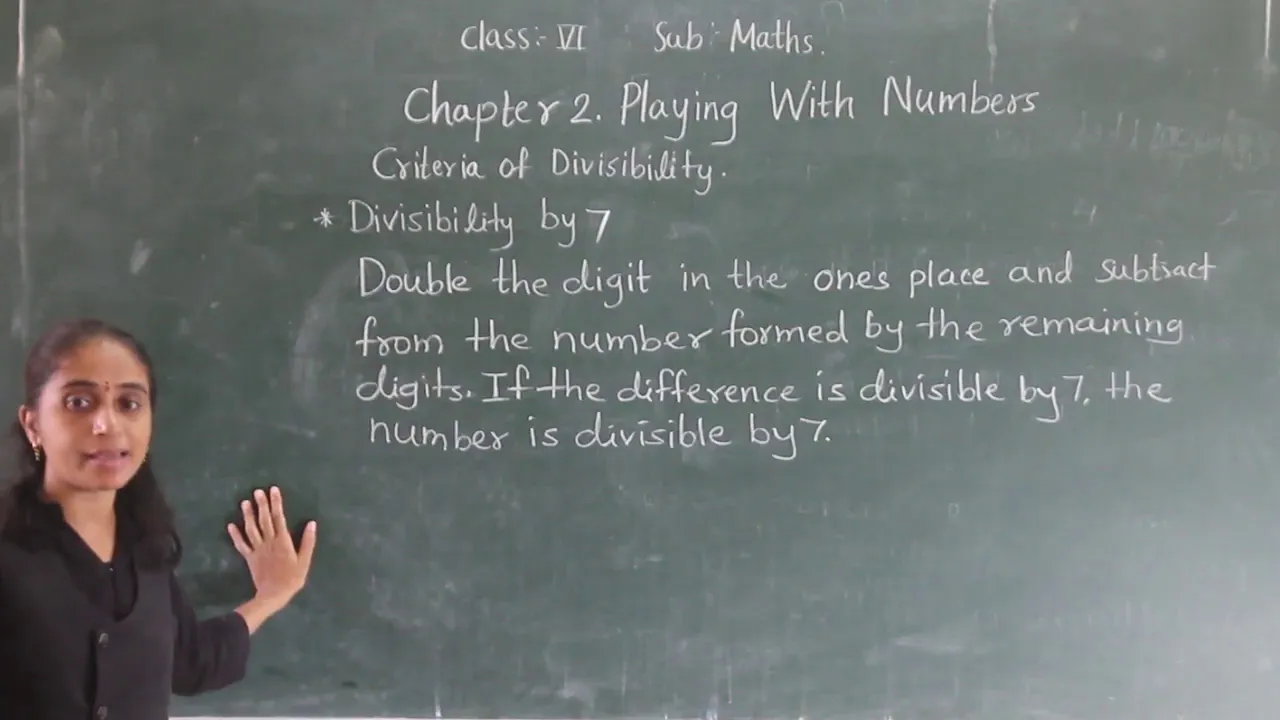 Class:- VI Sub:- Maths.
Chapter 2. Playing With Numbers
Criteria of Divisibility.
* Divisibility by 7
Double the digit in the ones place and subtract
from the number formed by the remaining
digits. If the difference is divisible by 7, the
number is divisible by 7.